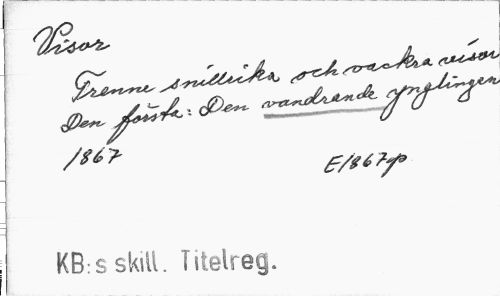 Visor
Trenne snillrika och vackra visor
Den första: Den vandrande ynglingen
1867 E1867p
KB:s skill. Titelreg.